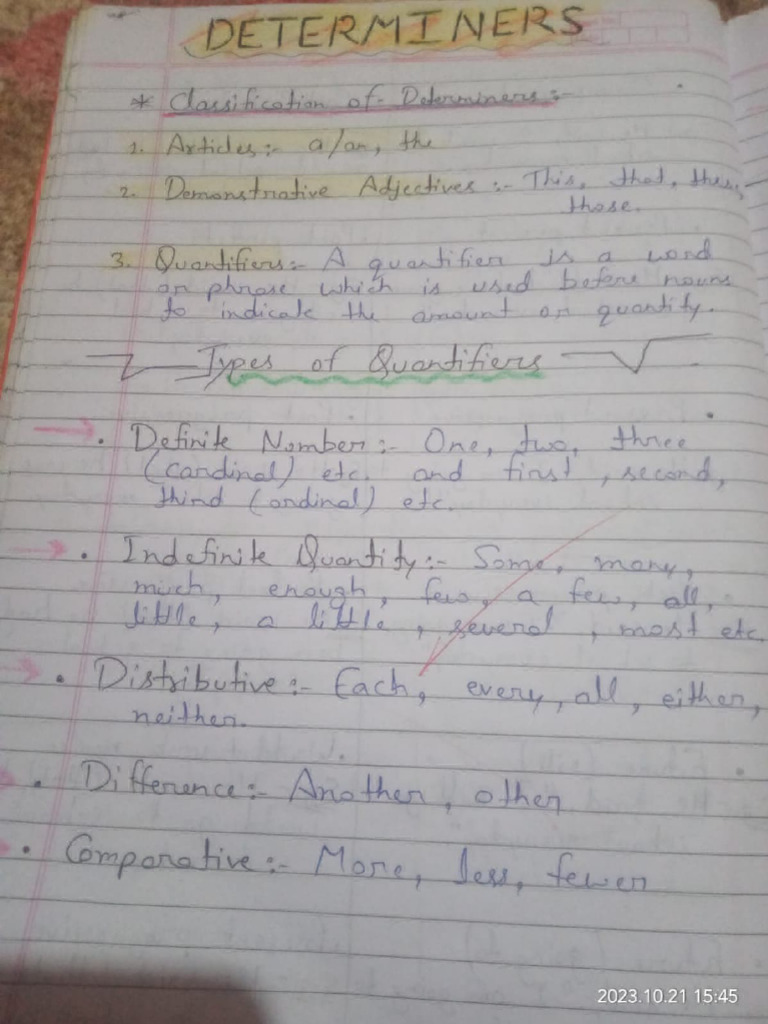 DETERMINERS
* Classification of Determiners:-
1. Articles:- a/an, the
2. Demonstrative Adjectives:- This, that, these,
those.
3. Quantifiers:- A quantifier is a word
or phrase which is used before nouns
to indicate the amount or quantity.
Types of Quantifiers
• Definite Number:- One, two, three
(cardinal) etc. and first, second,
third (ordinal) etc.
• Indefinite Quantity:- Some, many,
much, enough, few, a few, all,
little, a little, several, most etc
• Distributive:- Each, every, all, either,
neither.
• Difference:- Another, other
• Comparative:- More, less, fewer
2023.10.21 15:45